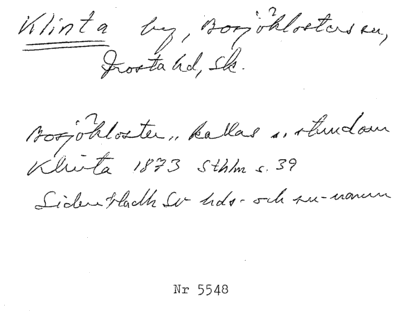 Klinta by, Bosjöklosters sn,
Frosta hd, Sk.
Bosjökloster,, kallas n. stundom
Klinta 1873 Sthlm s. 39
Sidenbladh Sv hds- och sn-namn
Nr 5548